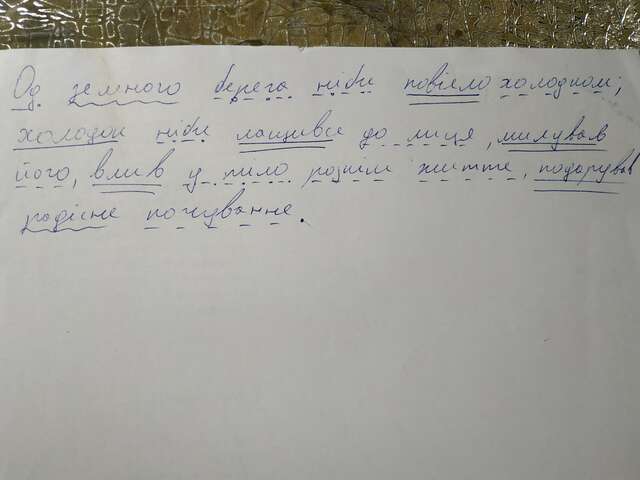 Од земного берега ніби повіяло холодком;
холодок ніби лащивсь до лиця, милував
його, влив у тіло розкіш життя, подарував
радісне почування.